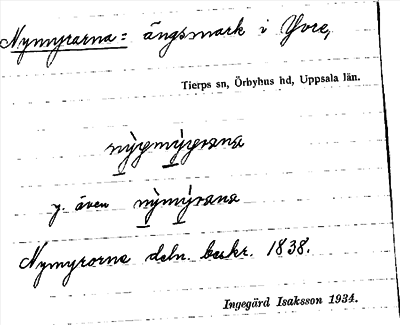 Nymyrarna = ängsmark i Yvre,
Tierps sn, Örbyhus hd, Uppsala län.
nỳgmýrana
y. även nỳmýrana
Nymyrorne deln. beskr. 1838.
Ingegärd Isaksson 1934.